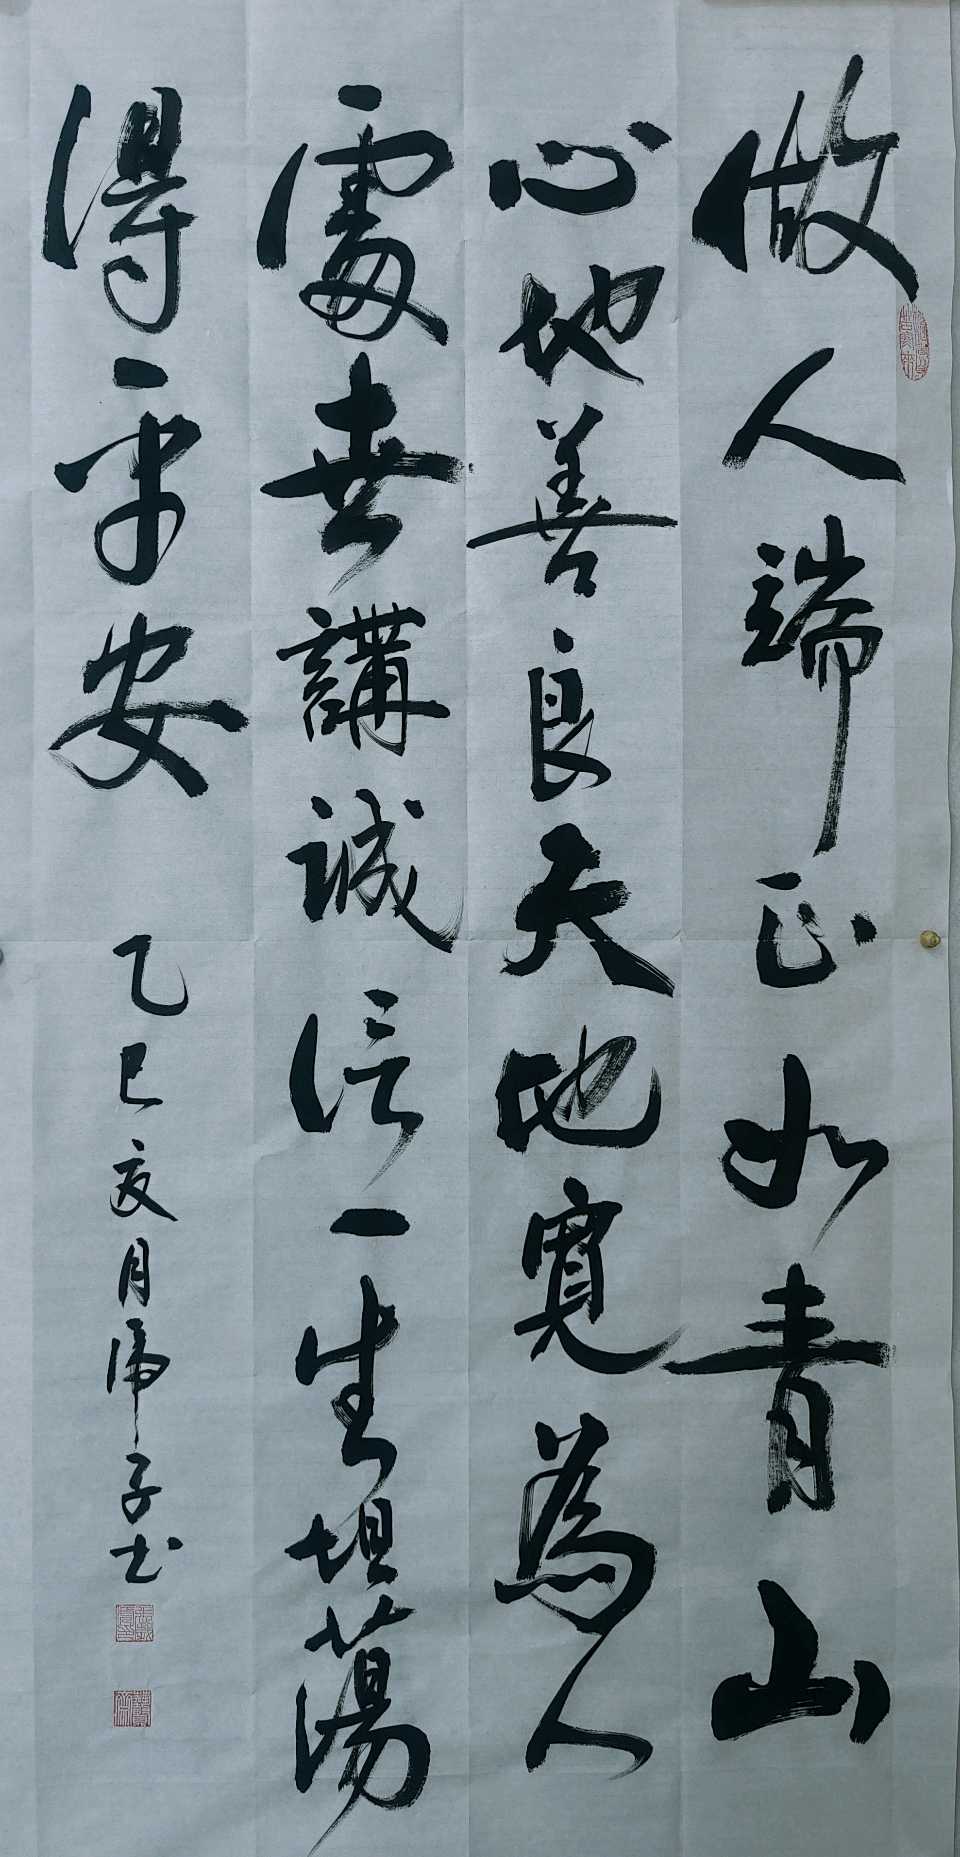 做人端正如青山
心地善良天地寬為人
處世講誠信一生坦蕩
得平安 乙巳夏月虎子书